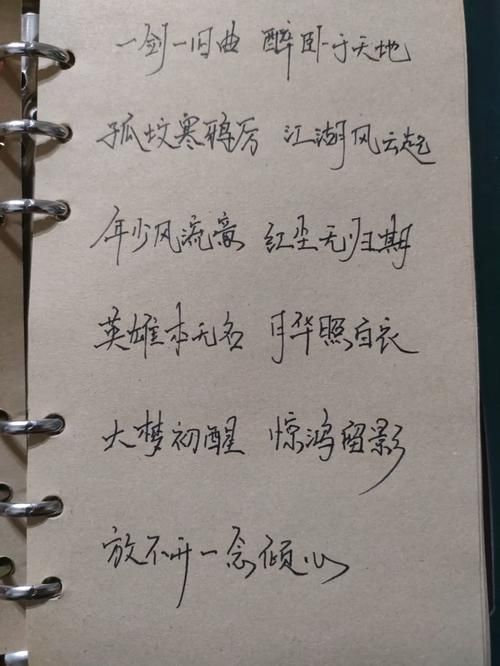 一剑一旧曲 醉卧于天地
孤坟寒鸦厉 江湖风云起
年少风流意 红尘无归期
英雄本无名 月华照白衣
大梦初醒 惊鸿留影
放不开一念倾心